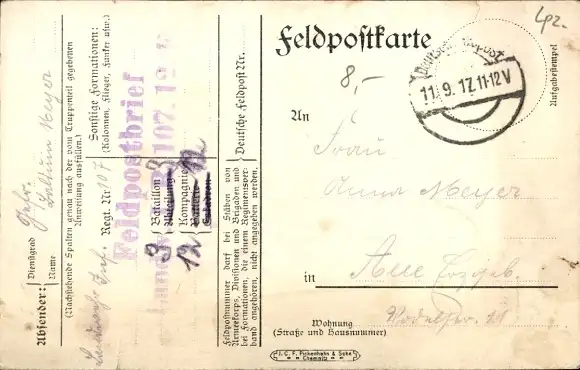 Feldpostkarte
42.
8,-
Deutsche Feldpost
11.9.17.11-12V
Aufgabestempel
An
Frau
Anna Meyer
in Aue Erzgeb.
Wohnung
(Straße und Hausnummer)
J. C. F. Pickenhahn & Sohn
Chemnitz
Absender:
Dienstgrad
Gefr.
Name
Meyer
(Nachstehende Spalten genau nach der vom Truppenteil gegebenen
Anweisung ausfüllen.)
Sonstige Formationen:
(Kolonnen, Flieger, Funker usw.)
Landwehr Inf. Regt. Nr. 107
Feldpostbrief
3 Bataillon
Abteilung
12 Kompagnie
Batterie
Eskadron
3
12
Deutsche Feldpost Nr.
Feldpostnummer darf bei Stäben von
Armeekorps, Divisionen und Brigaden und
bei Formationen, die einem Regimentsver-
band angehören, nicht angegeben werden.